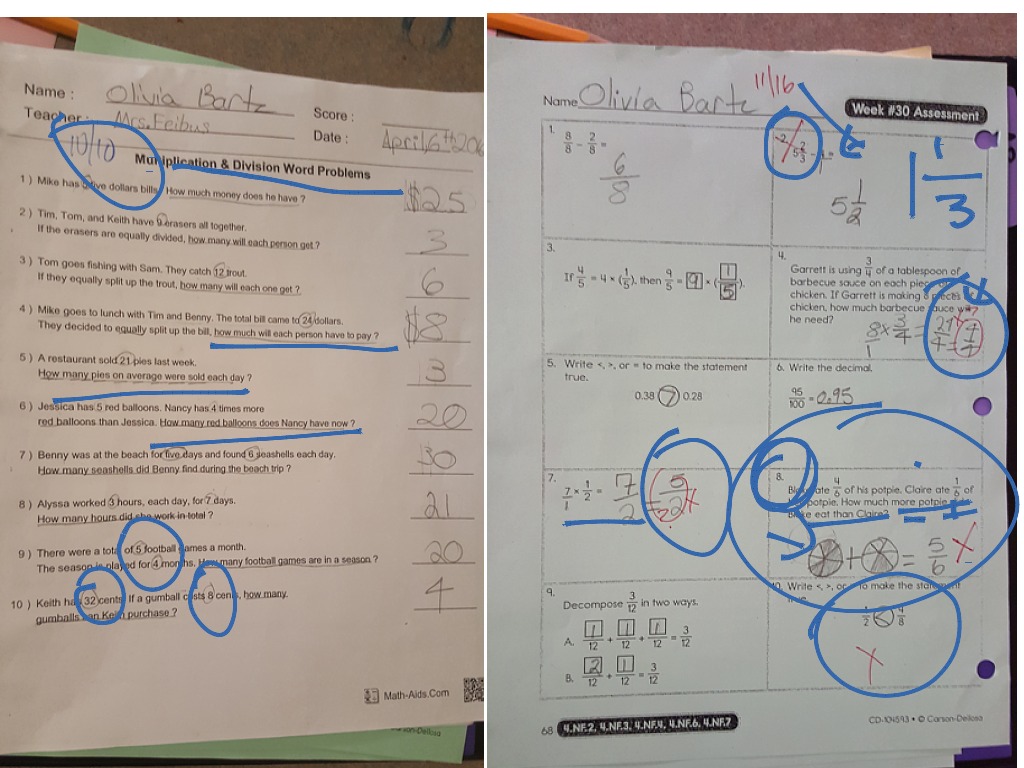 Name : Olivia Bartz Score :
Teacher : Mrs. Feibus Date : April, 6th
10/10
Multiplication & Division Word Problems
1 ) Mike has five dollars bills How much money does he have ? $25
2 ) Tim, Tom, and Keith have 9 erasers all together.
If the erasers are equally divided, how many will each person get ? 3
3 ) Tom goes fishing with Sam. They catch 12 trout.
If they equally split up the trout, how many will each one get ? 6
4 ) Mike goes to lunch with Tim and Benny. The total bill came to 24 dollars.
They decided to equally split up the bill, how much will each person have to pay ? $8
5 ) A restaurant sold 21 pies last week.
How many pies on average were sold each day ? 3
6 ) Jessica has 5 red balloons. Nancy has 4 times more
red balloons than Jessica. How many red balloons does Nancy have now ? 20
7 ) Benny was at the beach for five days and found 6 seashells each day.
How many seashells did Benny find during the beach trip ? 30
8 ) Alyssa worked 3 hours, each day, for 7 days.
How many hours did she work in total ? 21
9 ) There were a total of 5 football games a month.
The season is played for 4 months. How many football games are in a season ? 20
10 ) Keith has 32 cents. If a gumball costs 8 cents, how many
gumballs can Keith purchase ? 4
Math-Aids.Com
Name Olivia Bartz 11/16 Week #30 Assessment
1. 8/8 - 2/8 =
6/8
-2 5 2/3
5 1/2
1 1/3
3.
If 4/5 = 4 × (1/5), then 9/5 = 9 × (1/5).
4.
Garrett is using 3/4 of a tablespoon of
barbecue sauce on each piece of
chicken. If Garrett is making 8 pieces
chicken, how much barbecue sauce will
he need?
8/1 × 3/4 =
5. Write <, >, or = to make the statement
true.
0.38 > 0.28
6. Write the decimal.
95/100 = 0.95
7.
7/1 × 1/2 = 7/2 = 5/2 x
8.
Blake ate 4/6 of his potpie. Claire ate 1/6 of
potpie. How much more potpie
Blake eat than Claire?
+ = 5/6 X
9.
Decompose 3/12 in two ways.
A. 1/12 + 1/12 + 1/12 = 3/12
B. 2/12 + 1/12 = 3/12
10. Write <, >, or = to make the statement
true.
1/2 < 4/8
X
68 4.NF.2, 4.NF.3, 4.NF.4, 4.NF.6, 4.NF.7 CD-104593 • © Carson-Dellosa